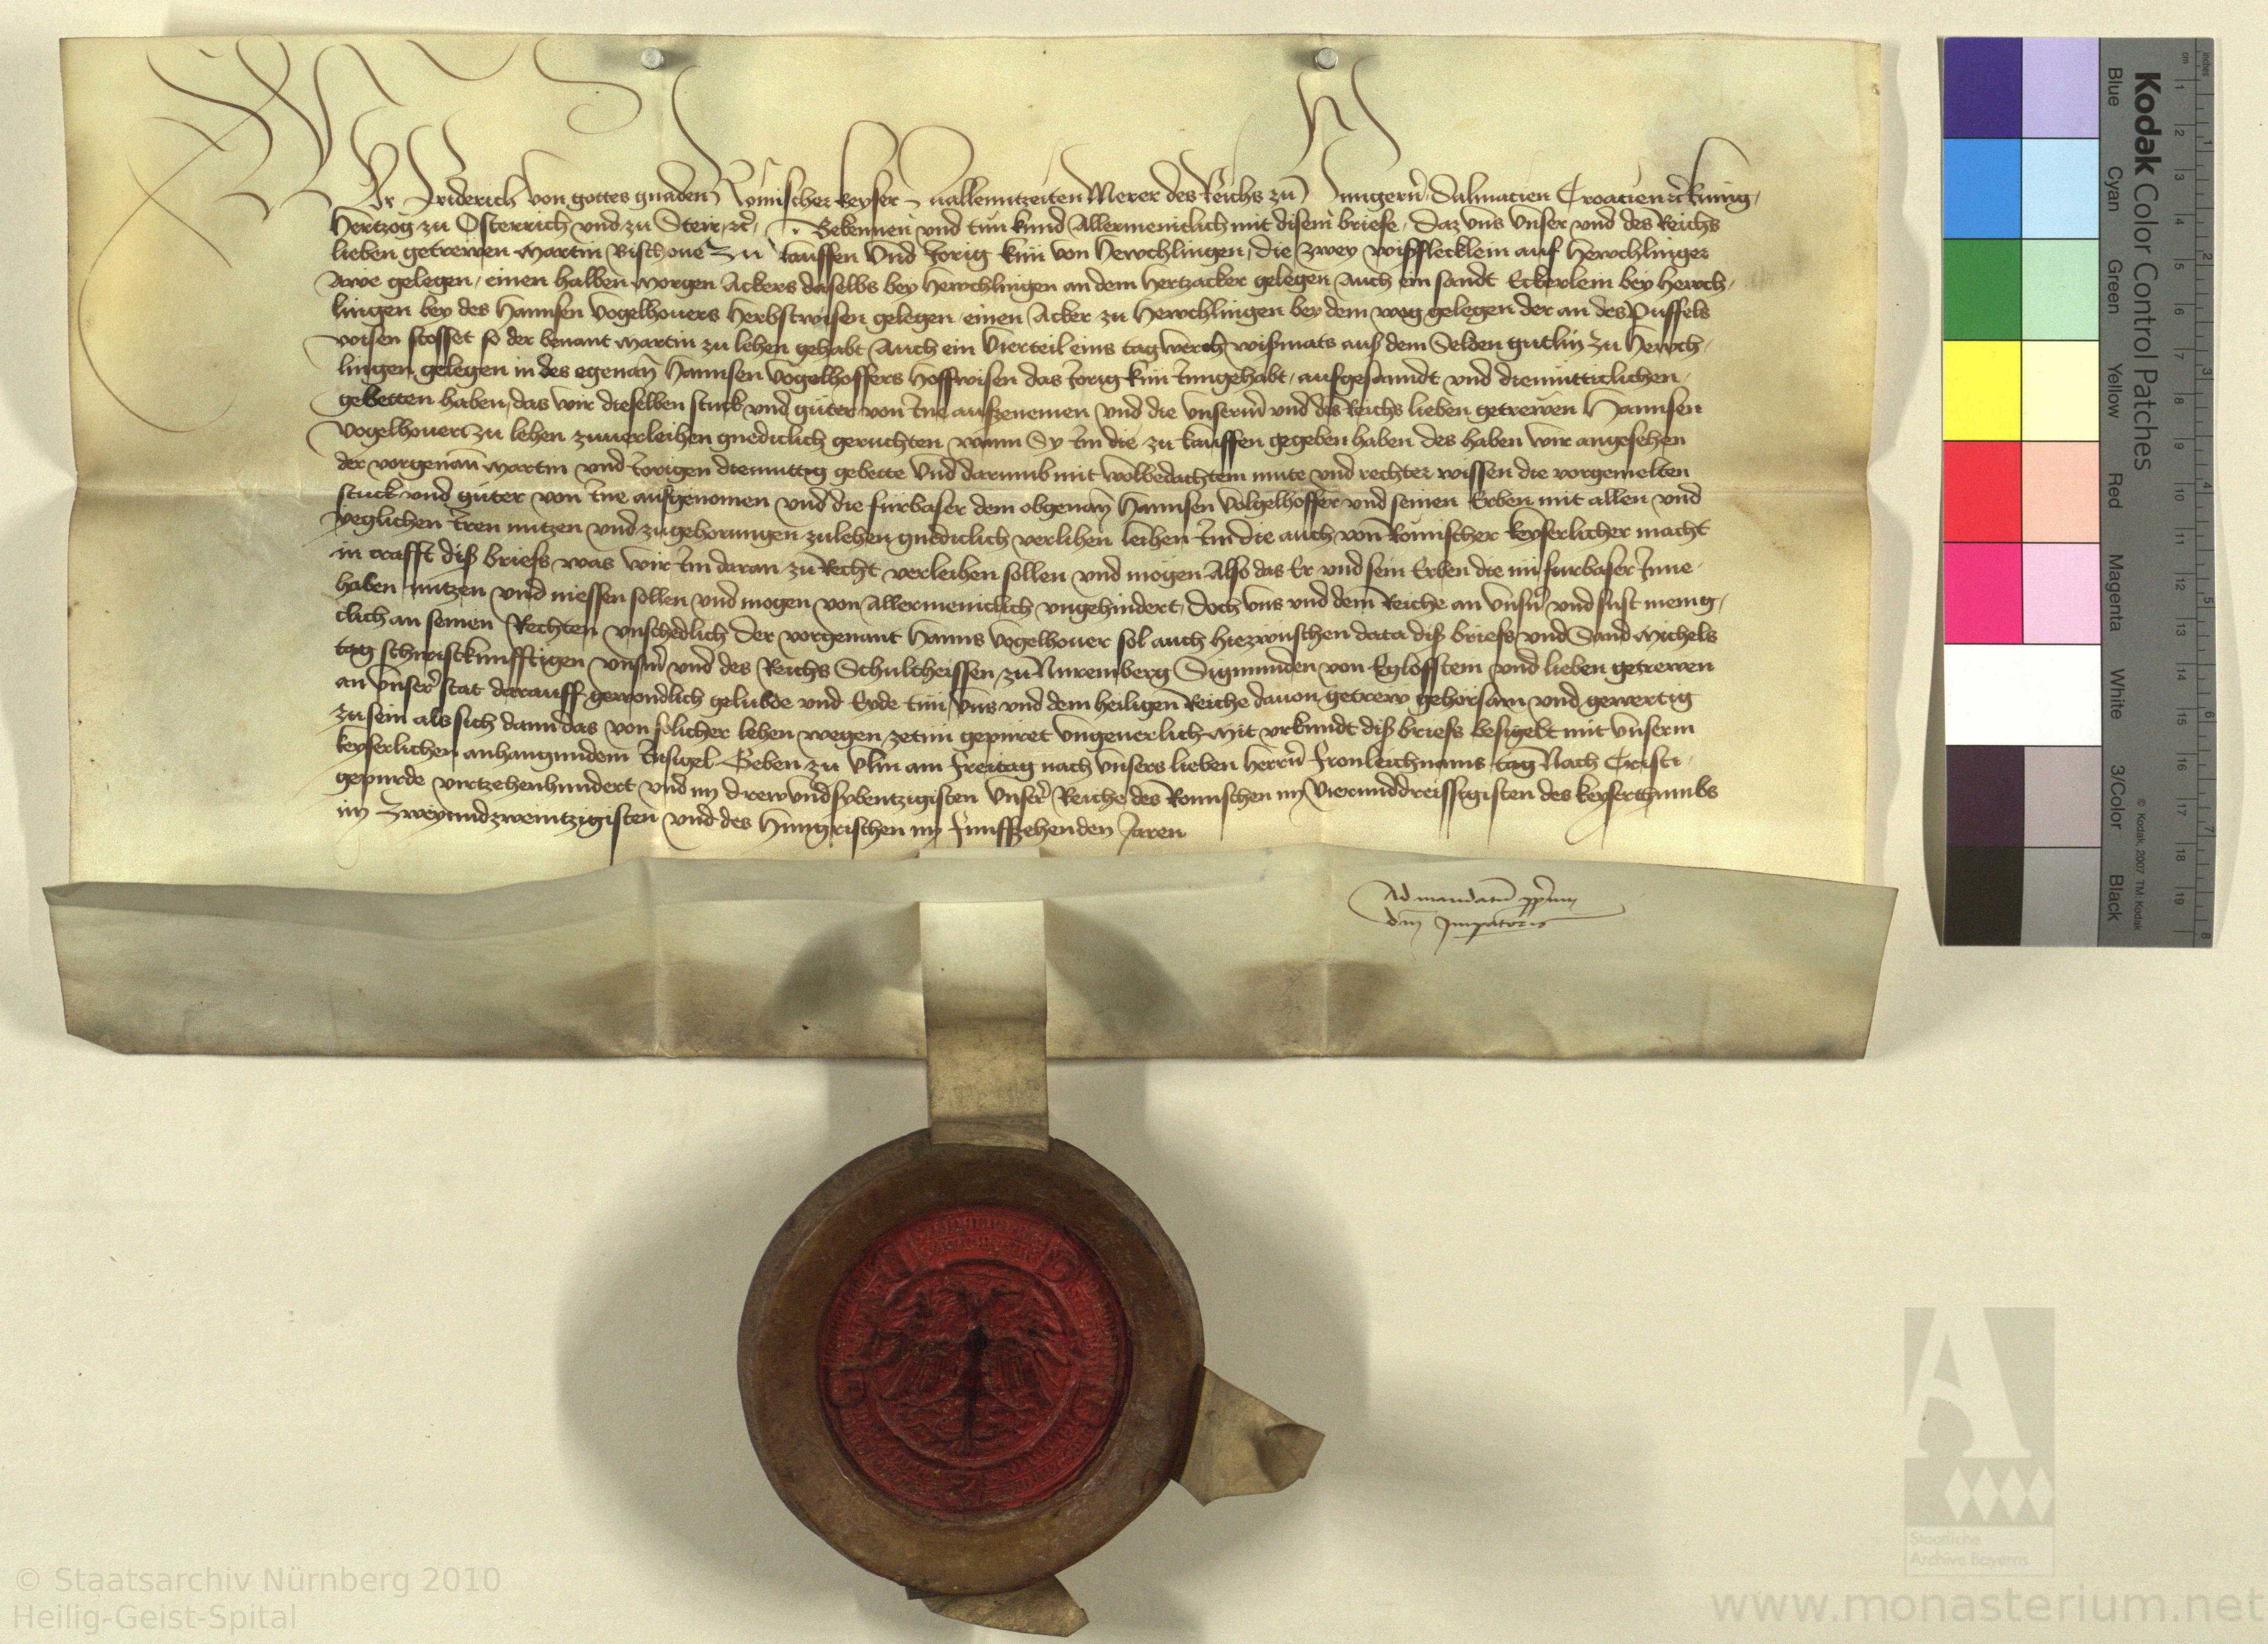 Wir Friderich von gottes gnaden Römischer keyser zuallenntzeiten Merer des Reichs zu Hungern Dalmacien Croacien ꝛc kunig
Hertzog zu Osterrich und zu Steir ꝛc Bekennen und tun kund Allermeniclich mit disem briefe, Daz uns unser und des Reichs
lieben getrewen Martin zu kauffen und Jorig von Herochlingen, die zwey wißflecklein auf Herochlinger
Awe gelegen, einen halben morgen Ackers daselbs bey Herochlingen an dem Hertzacker gelegen Auch ein sandt Eckerlein bey Heroch
lingen bey des Hannsen Vogelhouers Herbstwisen gelegen einen Acker zu Herochlingen bey dem weg gelegen der an des Puffels
wisen stosset so der benant Martin zu lehen gehabt Auch ein Vierteil eins tagwerch wißmats auß dem Selden gutlin zu Heroch
lingen gelegen in des egenan̄ Hannsen Vogelhoffers Hoffwisen das Jorig Inngehabt, aufgesanndt und diemutticlichen
gebetten haben, das wir dieselben stuck und guter von Ine aufzenemen und die unserm und des Reichs lieben getrewen Hannsen
Vogelhouer zu lehen zuuerleihen gnediclich geruchten wann Sy Im die zu kauffen gegeben haben des haben wir angesehen
der vorgenan̄ Martin und Jorigen diemuttig gebette Und darumb mit wolbedachtem mute und rechter wissen die vorgemelten
stuck und guter von Ine aufgenomen und die furbaser dem obgenan̄ Hannsen Volgelhoffer und seinen Erben mit allen und
yeglichen Iren nutzen und zugehorungen zulehen gnediclich verlihen leihen Im die auch von Römischer keyserlicher macht
in crafft diß briefs was wir Im daran zu Recht verleihen sollen und mogen Also das Er und sein Erben die nu furbaser Inne
haben nutzen und niessen sollen und mogen von Allermeniclich ungehindert, Doch uns und dem Reiche an unsern und sust menig
clich an seinen Rechten unschedlich Der vorgenant Hanns Vogelhouer sol auch hiezwischen data diß briefs und Sand Michels
tag schiristkunfftigen unserm und des Reichs Schultheissen zu Nuremberg Sigmunden von Eglofstein und lieben getrewen
an unser stat darauff gewondlich gelubde und Eyde tun, uns und dem heiligen Reiche dauon getrew gehorsam und gewertig
zusein als sich dann das von solicher lehen wegen zetun gepuret ungeuerlich Mit urkundt diß briefs besigelt mit unserm
keyserlichen anhangundem Insigel Geben zu Ulm am Freitag nach unsers lieben herrn Fronleichnams tag Nach Cristi
gepurde virtzehenhundert und im drewundsybentzigisten Unser Reiche des Romischen im Vierunddreissigisten des keyserthumbs
im Zweyundzweintzigisten und des Hungrischen im Funffzehenden Jaren
Ad mandatū ꝓp̄rium
dn̄i Imꝑatoris
Kodak Color Control Patches
Blue
Cyan
Green
Yellow
Red
Magenta
White
3/Color
Black
© Kodak, 2007 TM: Kodak
cm 1 2 3 4 5 6 7 8 9 10 11 12 13 14 15 16 17 18 19
inches 1 2 3 4 5 6 7 8
A
Staatliche
Archive Bayerns
© Staatsarchiv Nürnberg 2010
Heilig-Geist-Spital
www.monasterium.net